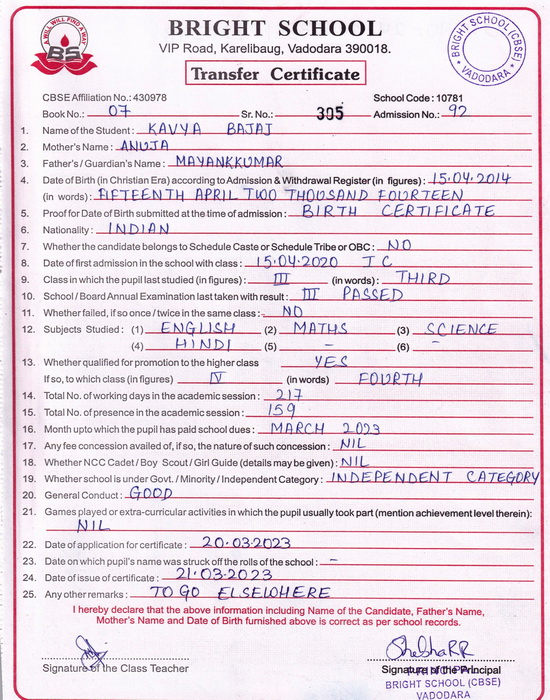 A WILL WILL FIND A WAY
BS
BRIGHT SCHOOL
VIP Road, Karelibaug, Vadodara 390018.
BRIGHT SCHOOL (CBSE)
VADODARA
Transfer Certificate
CBSE Affiliation No.: 430978 School Code : 10781
Book No.: 07 Sr. No.: 305 Admission No.: 92
1. Name of the Student : KAVYA BAJAJ
2. Mother's Name : ANUJA
3. Father's / Guardian's Name : MAYANKKUMAR
4. Date of Birth (in Christian Era) according to Admission & Withdrawal Register (in figures) : 15.04.2014
(in words) : FIFTEENTH APRIL TWO THOUSAND FOURTEEN
5. Proof for Date of Birth submitted at the time of admission : BIRTH CERTIFICATE
6. Nationality : INDIAN
7. Whether the candidate belongs to Schedule Caste or Schedule Tribe or OBC : NO
8. Date of first admission in the school with class : 15.04.2020 I C
9. Class in which the pupil last studied (in figures) : III (in words) : THIRD
10. School / Board Annual Examination last taken with result : III PASSED
11. Whether failed, if so once / twice in the same class : NO
12. Subjects Studied : (1) ENGLISH (2) MATHS (3) SCIENCE
(4) HINDI (5) - (6) -
13. Whether qualified for promotion to the higher class YES
If so, to which class (in figures) IV (in words) FOURTH
14. Total No. of working days in the academic session : 217
15. Total No. of presence in the academic session : 159
16. Month upto which the pupil has paid school dues : MARCH 2023
17. Any fee concession availed of, if so, the nature of such concession : NIL
18. Whether NCC Cadet / Boy Scout / Girl Guide (details may be given) : NIL
19. Whether school is under Govt. / Minority / Independent Category : INDEPENDENT CATEGORY
20. General Conduct : GOOD
21. Games played or extra-curricular activities in which the pupil usually took part (mention achievement level therein) :
NIL
22. Date of application for certificate : 20.03.2023
23. Date on which pupil's name was struck off the rolls of the school : -
24. Date of issue of certificate : 21.03.2023
25. Any other remarks : TO GO ELSEWHERE
I hereby declare that the above information including Name of the Candidate, Father's Name,
Mother's Name and Date of Birth furnished above is correct as per school records.
Signature of the Class Teacher Signature of the Principal
BRIGHT SCHOOL (CBSE)
VADODARA